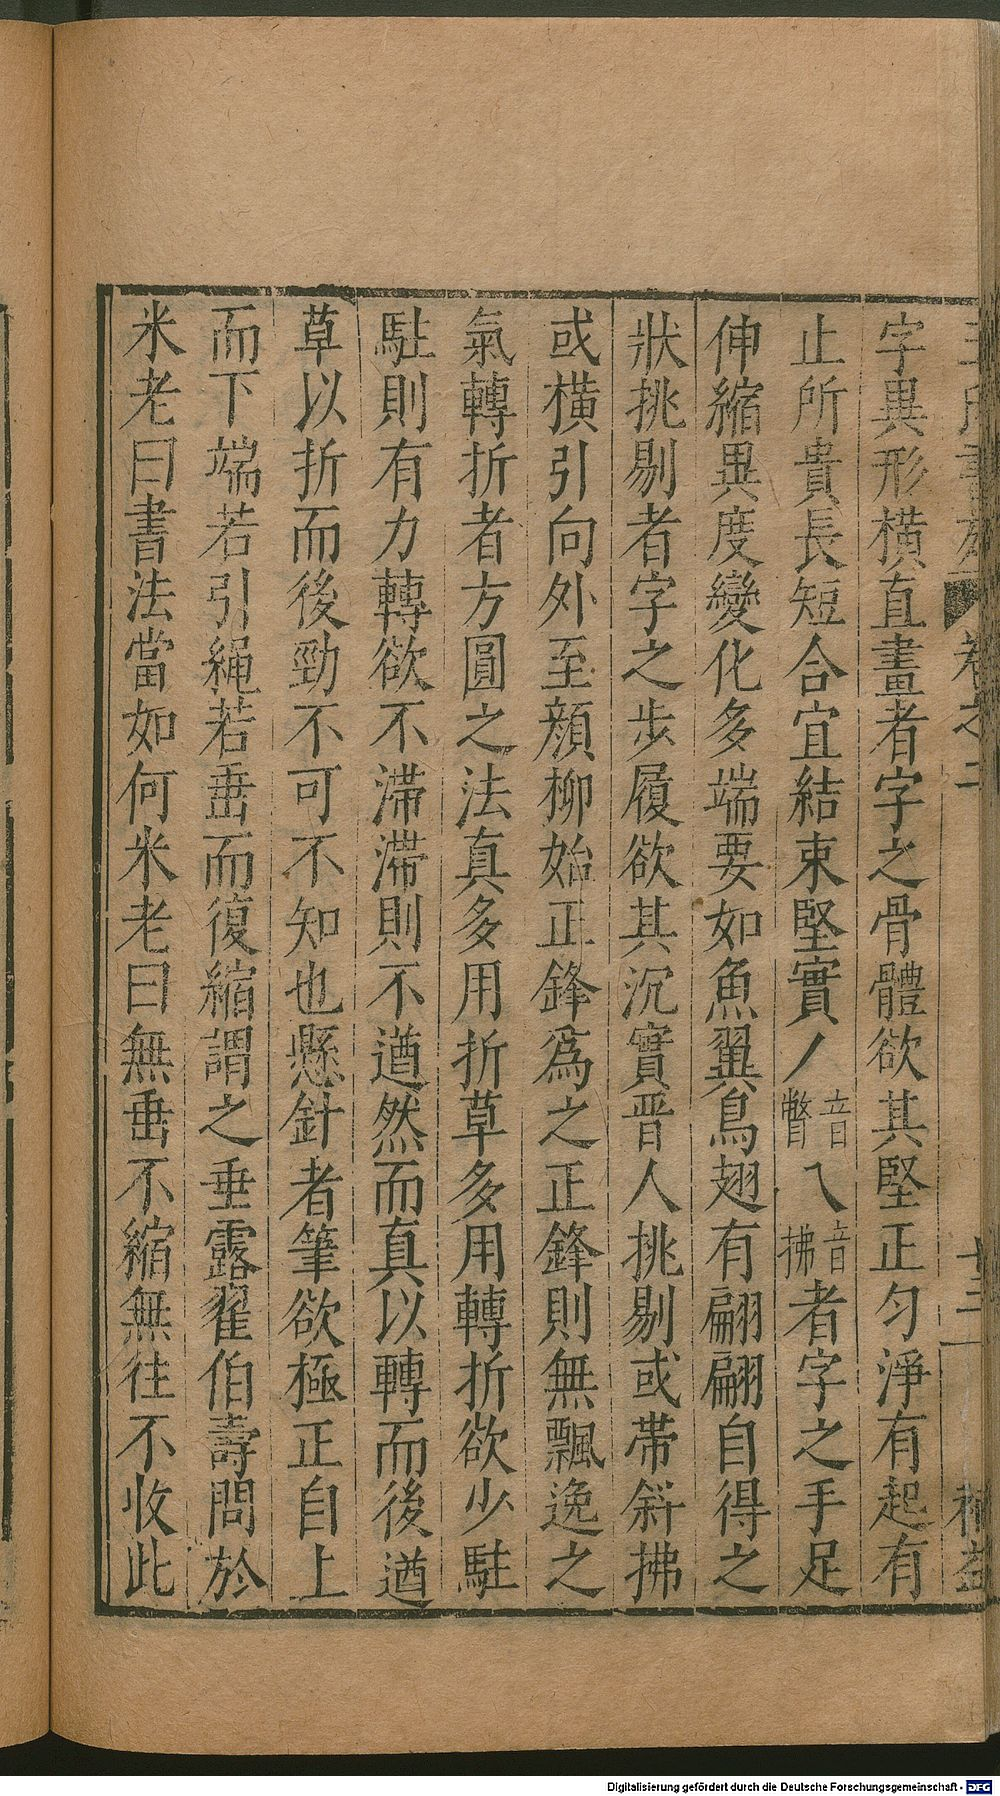 王氏書苑 卷之二 廿三 補益
字異形橫直畫者字之骨體欲其堅正勻淨有起有
止所貴長短合宜結束堅實丿音瞥乀音拂者字之手足
伸縮異度變化多端要如魚翼鳥翅有翩翩自得之
狀挑剔者字之步履欲其沉實晋人挑剔或帶斜拂
或橫引向外至顔柳始正鋒爲之正鋒則無飄逸之
氣轉折者方圓之法真多用折草多用轉折欲少駐
駐則有力轉欲不滯滯則不遒然而真以轉而後遒
草以折而後勁不可不知也懸針者筆欲極正自上
而下端若引繩若垂而復縮謂之垂露翟伯壽問於
米老曰書法當如何米老曰無垂不縮無往不收此
Digitalisierung gefördert durch die Deutsche Forschungsgemeinschaft - DFG